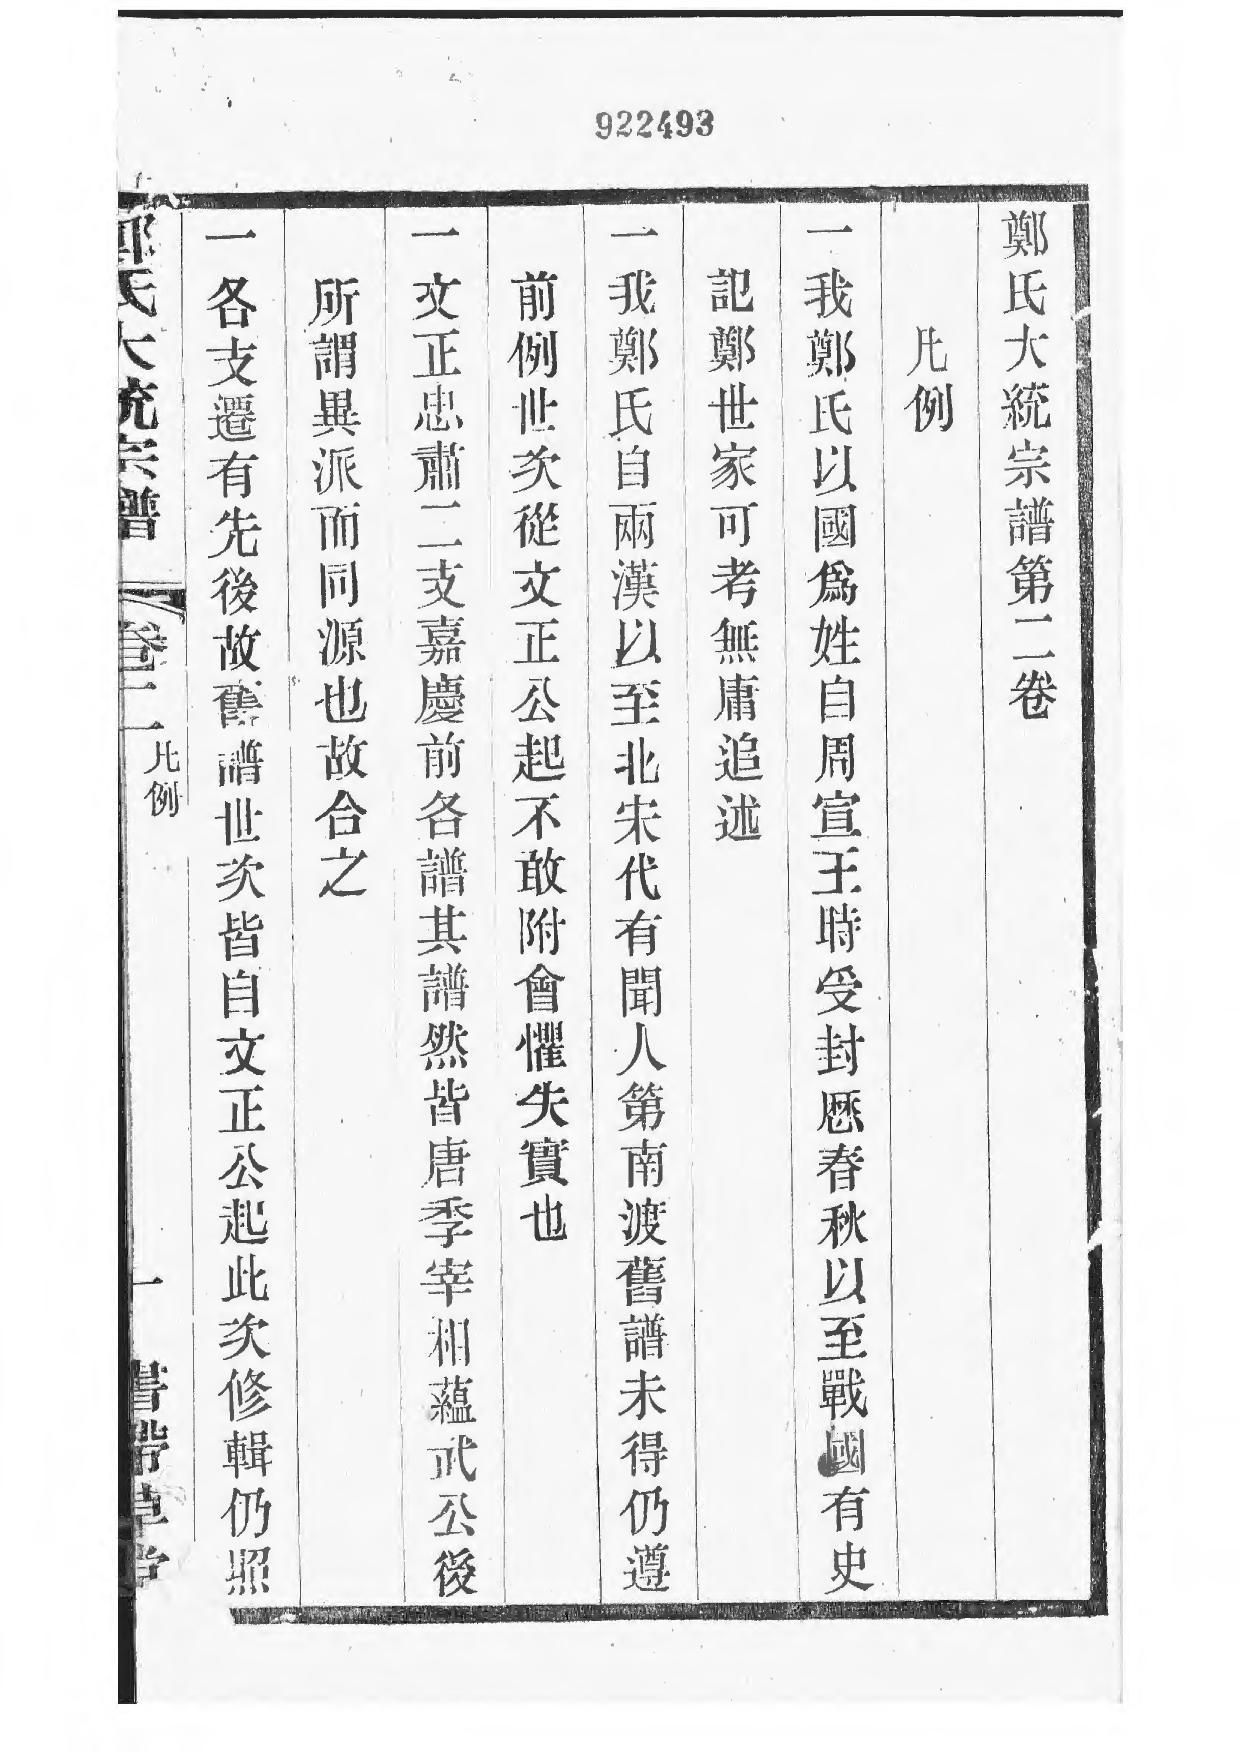 922493
鄭氏大統宗譜第二卷
凡例
一我鄭氏以國爲姓自周宣王時受封歷春秋以至戰國有史
記鄭世家可考無庸追述
一我鄭氏自兩漢以至北宋代有聞人第南渡舊譜未得仍遵
前例世次從文正公起不敢附會懼失實也
一文正忠肅二支嘉慶前各譜其譜然皆唐季宰相蘊武公後
所謂異派而同源也故合之
一各支遷有先後故舊譜世次皆自文正公起此次修輯仍照
鄭氏大統宗譜
卷二
凡例
一
書帶草堂